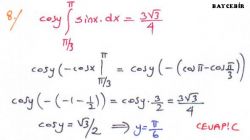 BAYCEBİR
8./ cosy ∫_{π/3}^{π} sinx.dx = 3√3/4
cosy(-cosx |_{π/3}^{π} = cosy(-(cosπ-cos π/3)
cosy(-(-1-1/2)) = cosy.3/2 = 3√3/4
cosy = √3/2 ⇒ y = π/6 CEVAP: C